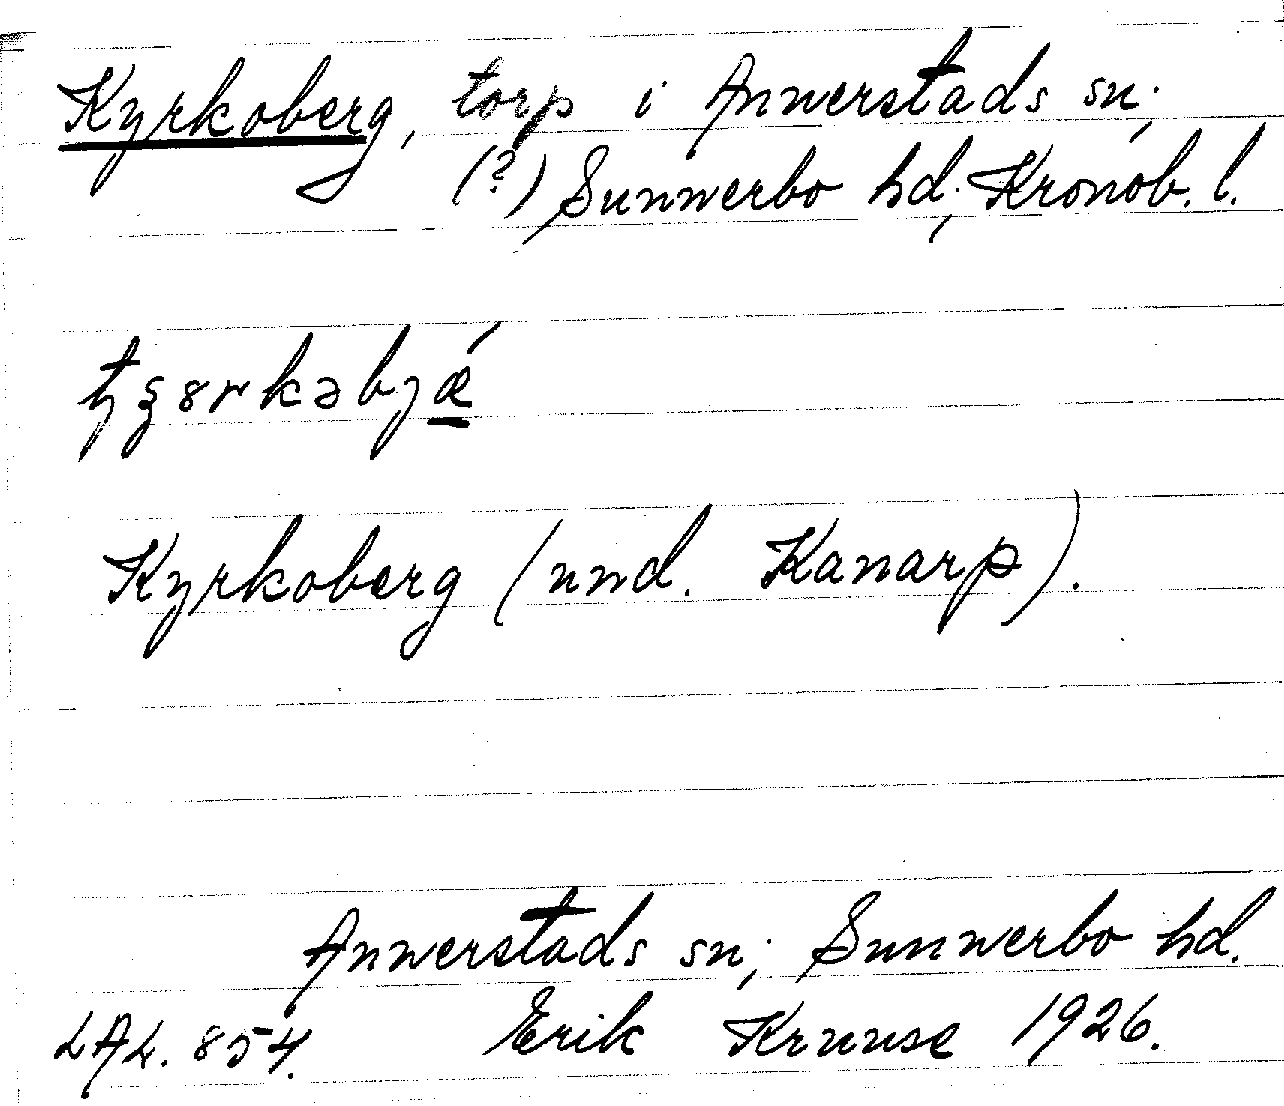 Kyrkoberg, torp i Annerstads sn.
(?) Sunnerbo hd; Kronob. l.
Kyrkoberg (und. Kanarp).
Annerstads sn; Sunnerbo hd.
LAL. 854. Erik Kruuse 1926.